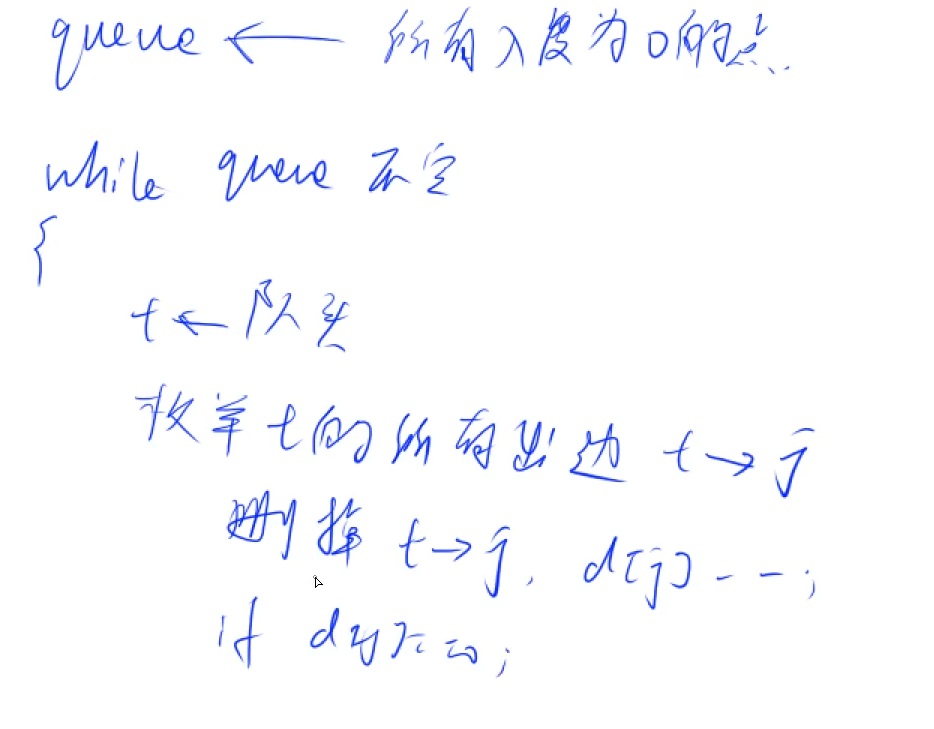 queue ← 所有入度为0的点
while queue 不空
{
t ← 队头
枚举t的所有出边 t→j
删掉 t→j, d[j]--;
if d[j]==0;